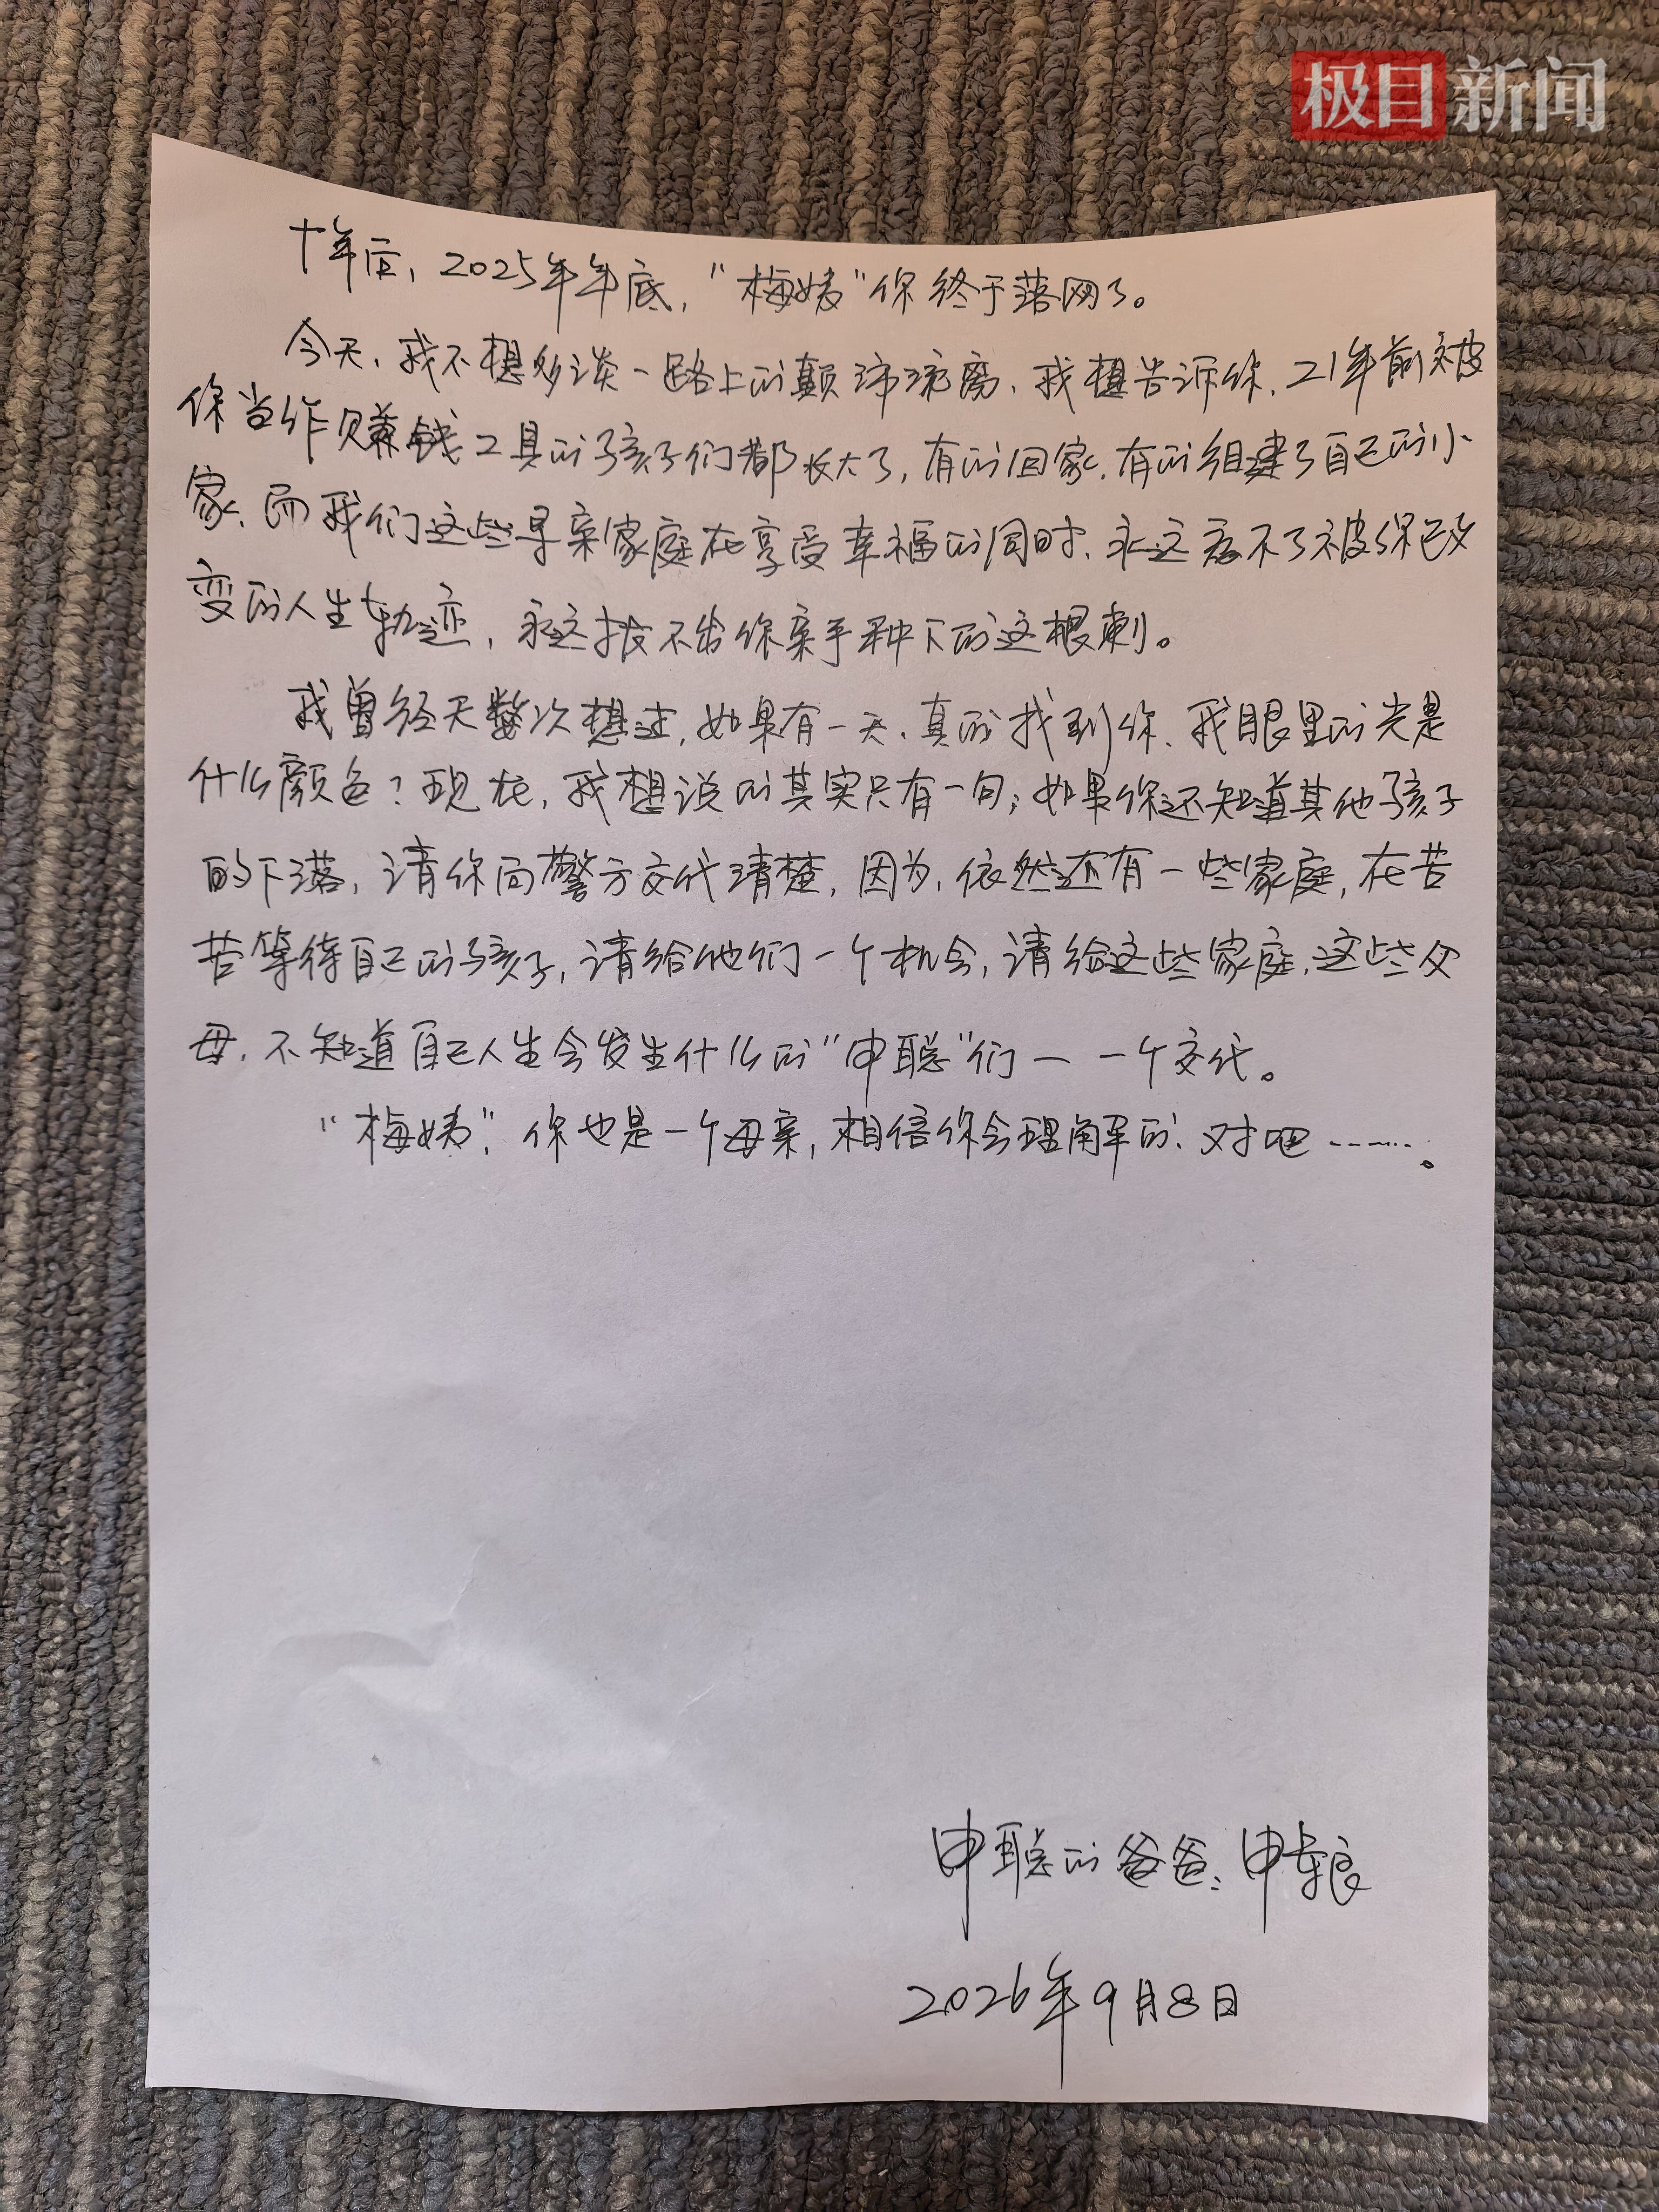 极目新闻
十年后，2025年年底，“梅姨”你终于落网了。
今天，我不想多谈一路上的颠沛流离，我想告诉你，21年前被
你当作赚钱工具的孩子们都长大了，有的回家，有的组建了自己的小
家，而我们这些寻亲家庭在享受幸福的同时，永远忘不了被你改
变的人生轨迹，永远拔不出你亲手种下的这根刺。
我曾经无数次想过，如果有一天，真的找到你，我眼里的光是
什么颜色？现在，我想说的其实只有一句；如果你还知道其他孩子
的下落，请你向警方交代清楚，因为，依然还有一些家庭，在苦
苦等待自己的孩子，请给他们一个机会，请给这些家庭，这些父
母，不知道自己人生会发生什么的“申聪”们一 一个交代。
“梅姨”，你也是一个母亲，相信你会理解的，对吧……。
申聪的爸爸：申军良
2026年9月8日